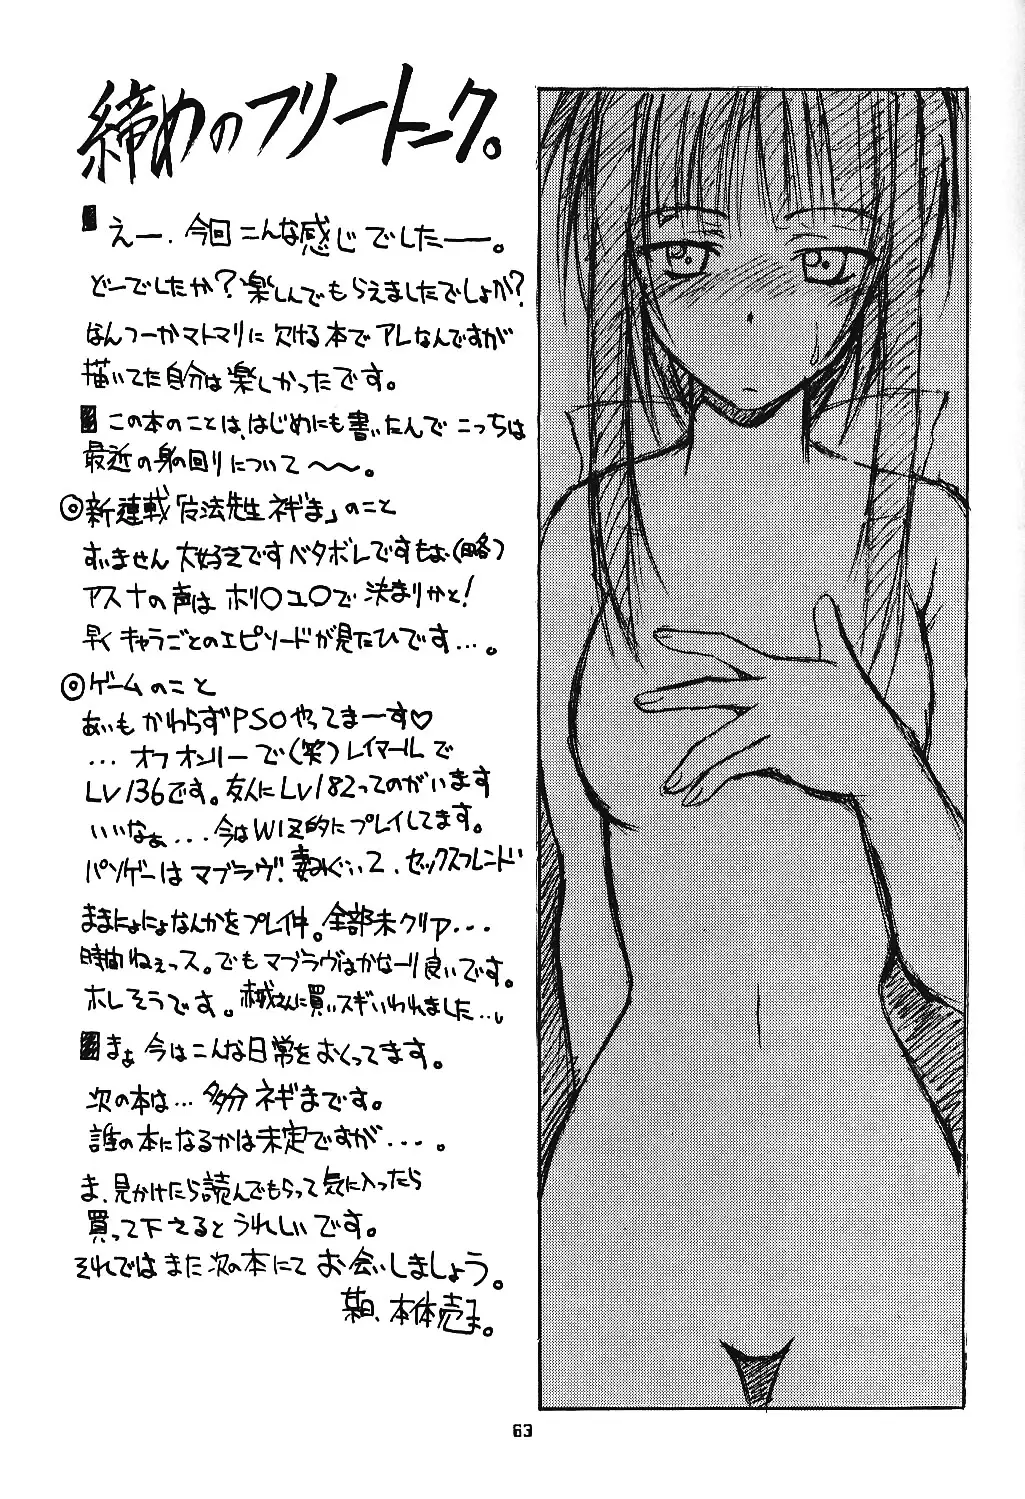 締めのフリートーク。
えー、今回こんな感じでしたー。
どーでしたか?楽しんでもらえましたでしょか?
なんつーかマトマリに欠ける本でアレなんですが
描いてた自分は楽しかったです。
この本のことは、はじめにも書いたんでこっちは
最近の身の回りについて〜〜。
◎新連載「魔法先生ネギま」のこと
すいません大好きですベタボレですもぉ(略)
アスナの声はホリ○ユ○で決まりかと!
早くキャラごとのエピソードが見たひです...。
◎ゲームのこと
あいもかわらずPSOやってまーす♡
...オフオンリーで(笑)レイマールで
Lv136です。友人にLv182ってのがいます
いいなぁ...今はWIZ的にプレイしてます。
パソゲーはマブラヴ、妻みぐい2、セックスフレンド
ままにょにょなんかをプレイ中。全部未クリア...
時間ねぇっス。でもマブラヴはかなーり良いです。
ホレそうです。さんに買いスギいわれました...。
まぁ今はこんな日常をおくってます。
次の本は...多分ネギまです。
誰の本になるかは未定ですが...。
ま、見かけたら読んでもらって気に入ったら
買って下さるとうれしいです。
それではまた次の本にてお会いしましょう。
本体売ま。
63